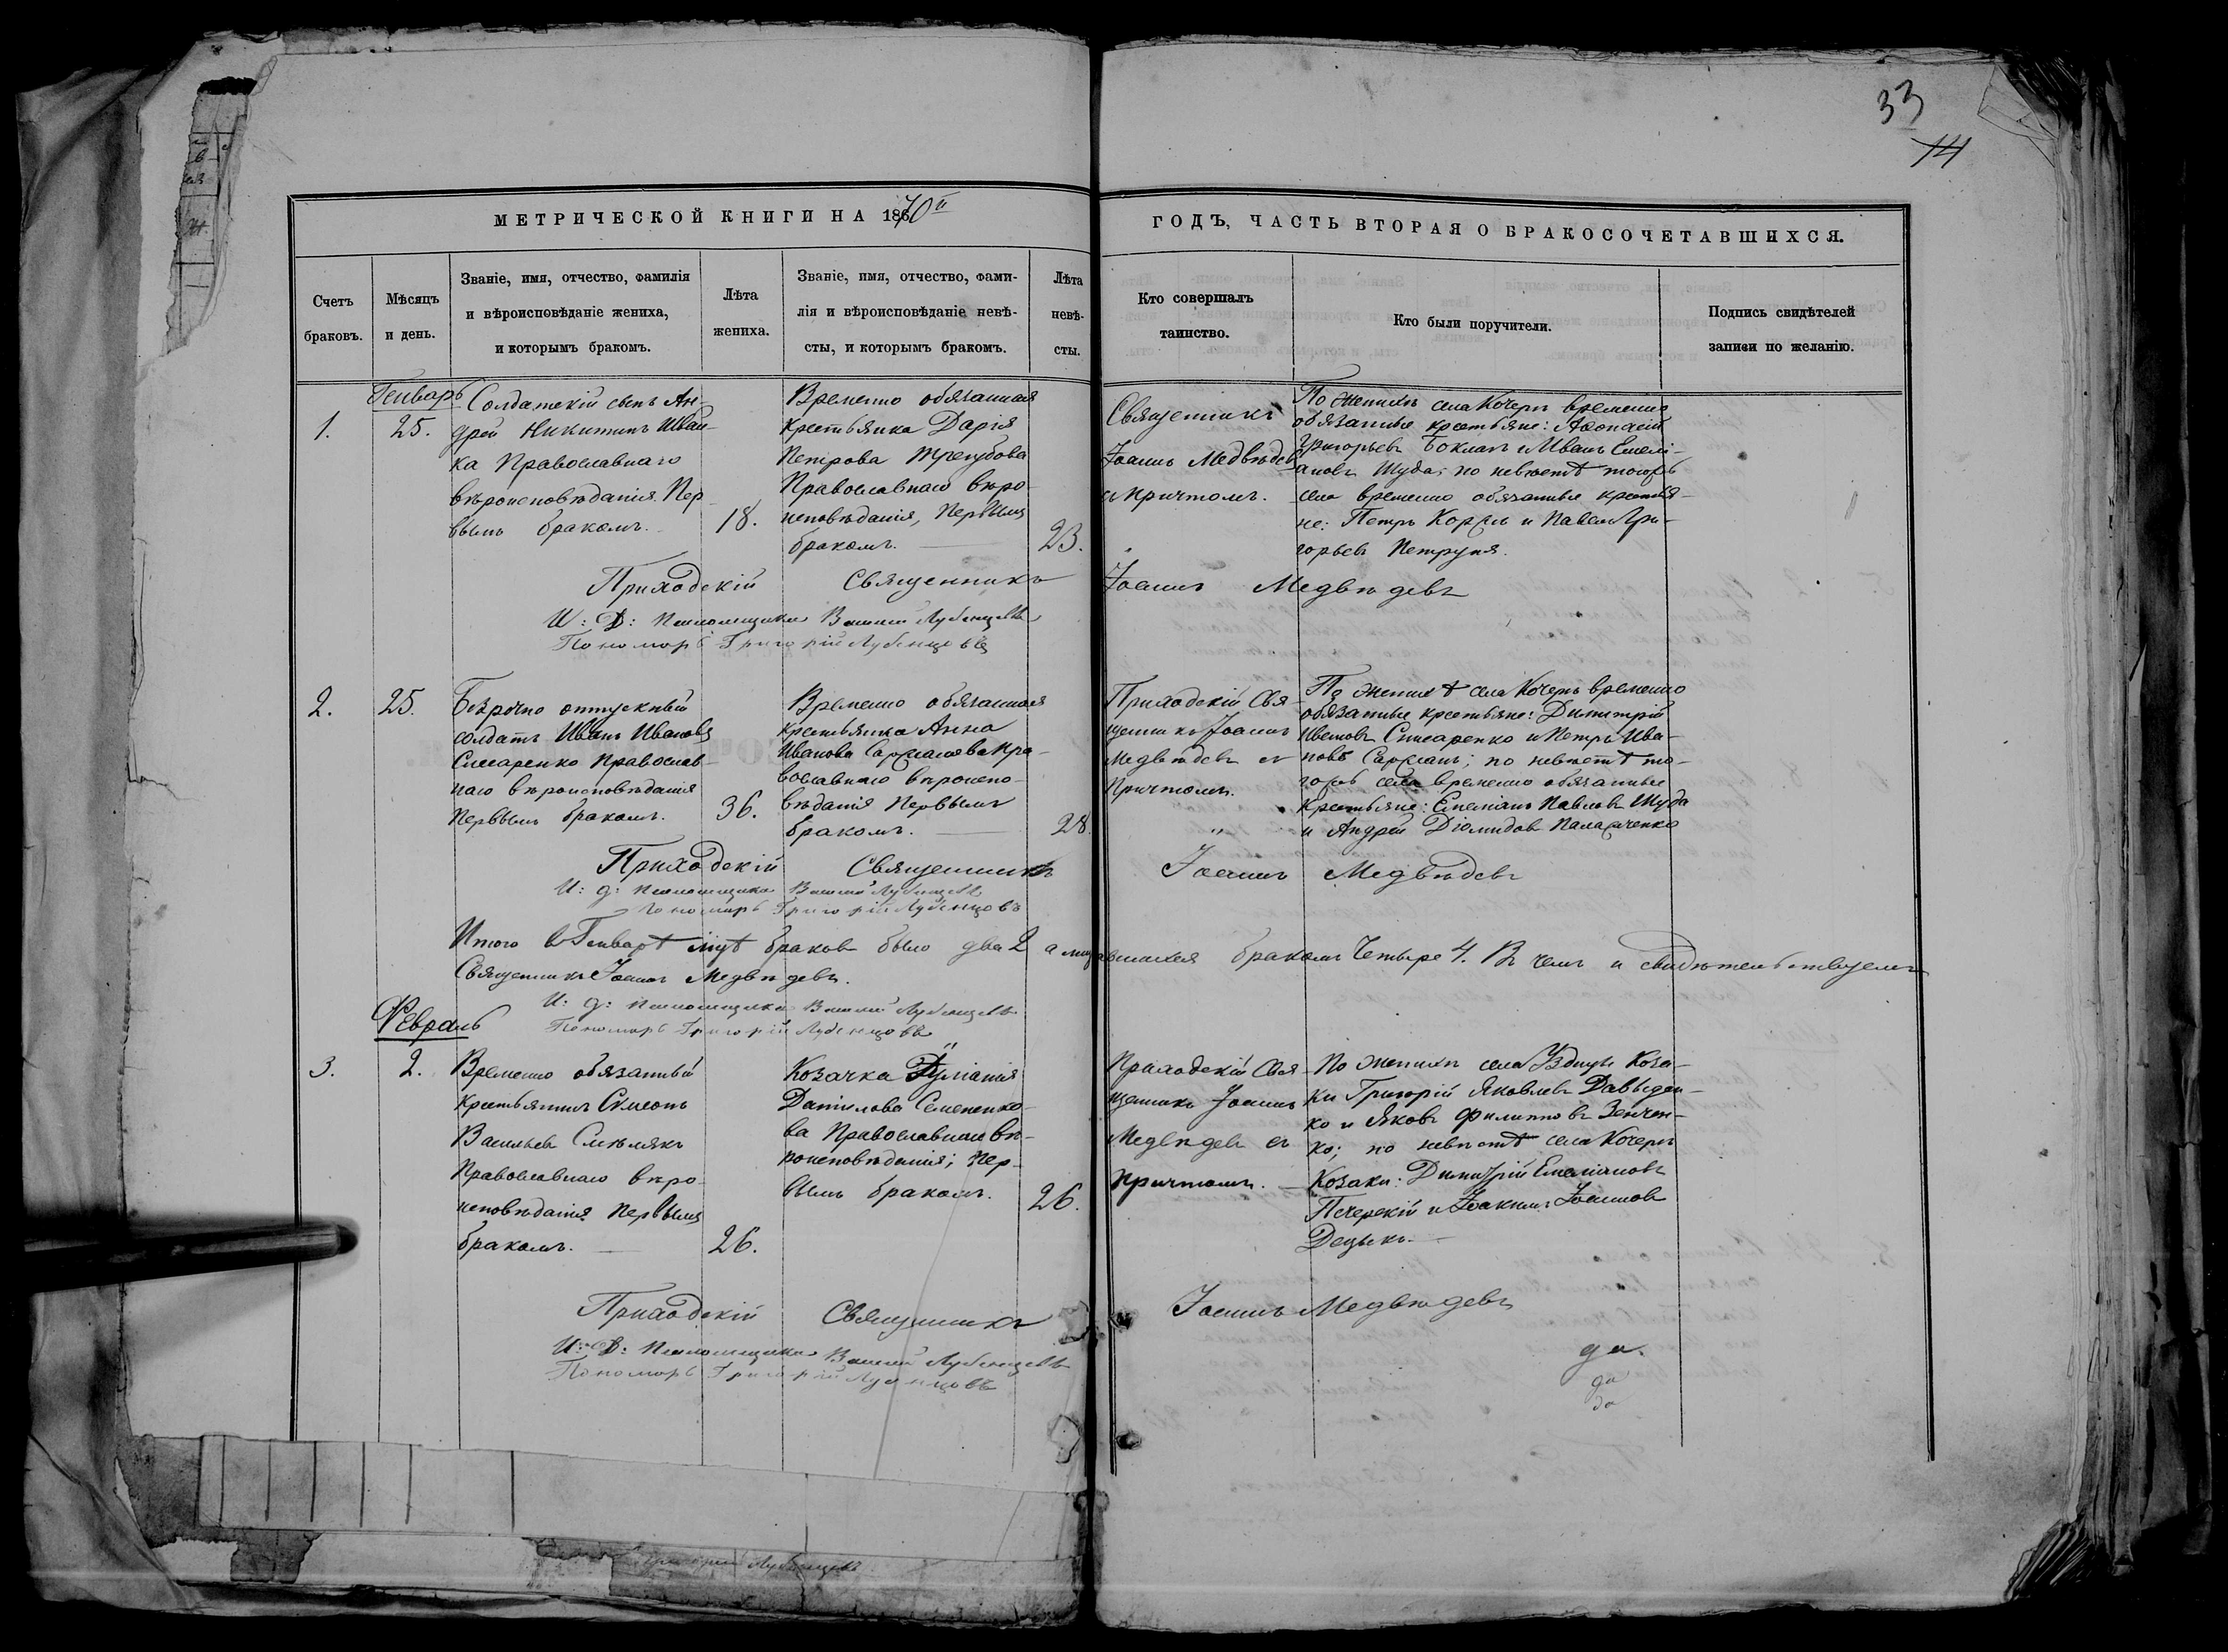 33
14
МЕТРИЧЕСКОЙ КНИГИ НА 1870й
ГОДЪ, ЧАСТЬ ВТОРАЯ О БРАКОСОЧЕТАВШИХСЯ.
Счетъ
браковъ.
Мѣсяцъ
и день.
Званіе, имя, отчество, фамилія
и вѣроисповѣданіе жениха,
и которымъ бракомъ.
Лѣта
жениха.
Званіе, имя, отчество, фами-
лія и вѣроисповѣданіе невѣ-
сты, и которымъ бракомъ.
Лѣта
невѣ-
сты.
Кто совершалъ
таинство.
Кто были поручители.
Подпись свидѣтелей
записи по желанію.
Генварь
1.
25.
Солдатскій сынъ Ан-
дрей Никитинъ Иван-
ка Православнаго
вѣроисповѣданія. Пер-
вымъ бракомъ.
18.
Временно обязанная
крестьянка Дарія
Петрова Трегубова
Православнаго вѣро-
исповѣданія, первымъ
бракомъ.
23.
Священникъ
Іоаннъ Медвѣдевъ
съ причтомъ.
По женихѣ села Кочеръ временно
обязанные крестьяне: Аѳонасій
Григорьевъ Бокланъ и Иванъ Емелі-
ановъ Шуда; по невѣстѣ тогожъ
села временно обязанные крестья-
не: Петръ и Павелъ Гри-
горьевъ Петруня.
Приходскій Священникъ Іоаннъ Медвѣдевъ
И: Д: Псаломщика Василій Лубенцевъ
Пономарь Григорій Лубенцовъ
2.
25.
Безрочно отпускный
солдатъ Иванъ Ивановъ
Слисаренко Православ-
наго вѣроисповѣданія
первымъ бракомъ.
36.
Временно обязанная
крестьянка Анна
Иванова Пра-
вославнаго вѣроиспо-
вѣданія первымъ
бракомъ.
28.
Приходскій Свя-
щенникъ Іоаннъ
Медвѣдевъ съ
причтомъ.
По женихѣ села Кочеръ временно
обязанные крестьяне: Димитрій
Ивановъ Слисаренко и Петръ Ива-
новъ по невѣстѣ то-
гожъ села временно обязанные
крестьяне: Емеліанъ Павловъ Шуда
и Андрей Діомидовъ
Приходскій Священникъ Іоаннъ Медвѣдевъ
И: д: Псаломщика Василій Лубенцевъ
Пономарь Григорій Лубенцовъ
Итого въ Генварѣ мцѣ браковъ было два 2 а бракомъ четыре 4. Въ чемъ и свидѣтельствуемъ
Священникъ Іоаннъ Медвѣдевъ.
И: д: Псаломщика Василій Лубенцевъ
Пономарь Григорій Лубенцовъ
Февраль
3.
2.
Временно обязанный
крестьянинъ Сѵмеонъ
Васильевъ Смѣлякъ
Православнаго вѣро-
исповѣданія первымъ
бракомъ.
26.
Козачка
Данилова Семененко-
ва Православнаго вѣ-
роисповѣданія; пер-
вымъ бракомъ.
26.
Приходскій Свя-
щенникъ Іоаннъ
Медвѣдевъ съ
причтомъ.
По женихѣ села Уздицы Коза-
ки Григорій Яковлевъ Давыден-
ко и Яковъ Филипповъ Зенчен-
ко; по невѣстѣ села Кочеръ
Козаки: Димитрій Емеліановъ
Печерскій и Іоакимъ Іоанновъ
Децыкъ.
Приходскій Священникъ Іоаннъ Медвѣдевъ
И: Д: Псаломщика Василій Лубенцевъ
Пономарь Григорій Лубенцовъ
да.
да
да
Григорій Лубенцовъ